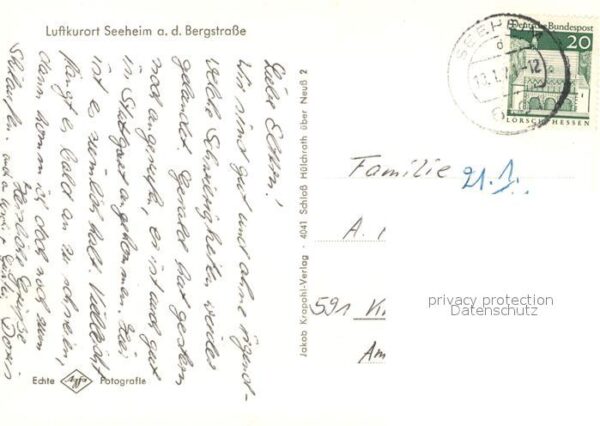 Luftkurort Seeheim a. d. Bergstraße
Liebe Eltern!
Wir sind gut und ohne irgend-
welche Schwierigkeiten wieder
gelandet. Gerald hat gestern
noch angerufen, er ist auch gut
in Stuttgart angekommen. Hier
ist es ziemlich kalt. Vielleicht
fängt es bald an zu schneien,
dann komm ich doch noch zum
Skilaufen.
Herzliche Grüße
Doris
Echte Agfa Fotografie
Jakob Krapohl-Verlag · 4041 Schloß Hülchrath über Neuß 2
SEEHEIM
Deutsche Bundespost
20
LORSCH · HESSEN
Familie
21.1.
A.
591 K
Am
privacy protection
Datenschutz